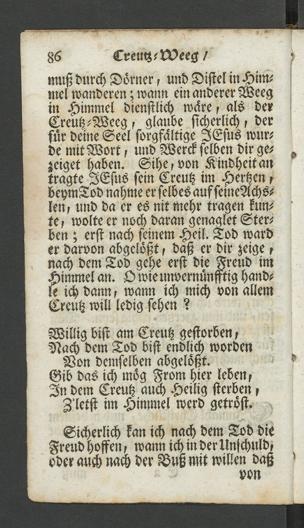 86 Creutz-Weeg /
muß durch Dörner, und Distel in Him-
mel wanderen; wann ein anderer Weeg
in Himmel dienstlich wäre, als der
Creutz-Weeg, glaube sicherlich, der
für deine Seel sorgfältige JEsus wur-
de mit Wort, und Werck selben dir ge-
zeiget haben. Sihe, von Kindheit an
tragte JEsus sein Creutz im Hertzen,
beym Tod nahme er selbes auf seine Achs-
len, und da er es nit mehr tragen kun-
te, wolte er noch daran genaglet Ster-
ben; erst nach seinem Heil. Tod ward
er darvon abgelößt, daß er dir zeige,
nach dem Tod gehe erst die Freud im
Himmel an. O wie unvernünfftig hand-
le ich dann, wann ich mich von allem
Creutz will ledig sehen?
Willig bist am Creutz gestorben,
Nach dem Tod bist endlich worden
Von demselben abgelößt.
Gib das ich mög From hier leben,
In dem Creutz auch Heilig sterben,
Z'letst im Himmel werd getröst.
Sicherlich kan ich nach dem Tod die
Freud hoffen, wann ich in der Unschuld,
oder auch nach der Buß mit willen daß
von